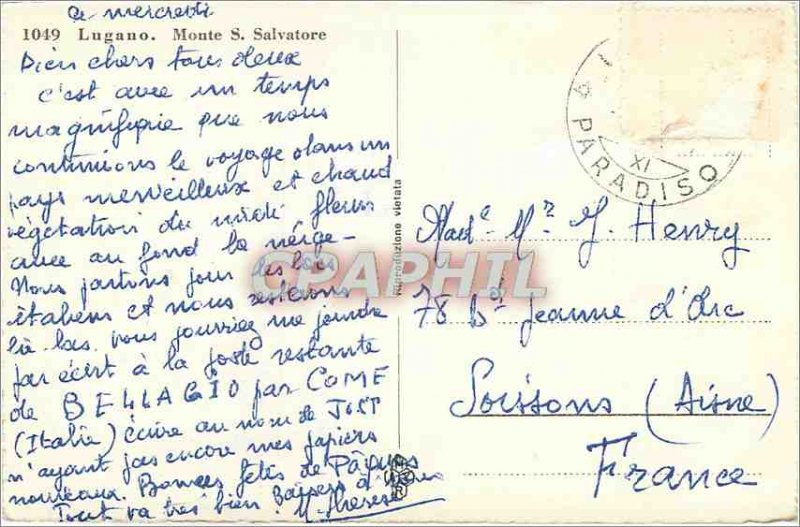 Ce mercredi
1049 Lugano. Monte S. Salvatore
Bien chers tous deux
c'est avec un temps
magnifique que nous
continuons le voyage dans un
pays merveilleux et chaud
végétation du midi fleurs
avec au fond la neige-
Nous partons pour les lacs
italiens et nous resterons
là bas vous pouvez me joindre
par écrit à la poste restante
de BELLAGIO par COME
(Italie) écrire au nom de JOST
n'ayant pas encore mes papiers
nouveaux. Bonnes fêtes de Pâques
Tout va très bien Baisers à vous
M. Therese
riproduzione vietata
CPAPHIL
PARADISO
XI
Mr J. Henry
78 Bd Jeanne d'Arc
Soissons (Aisne)
France